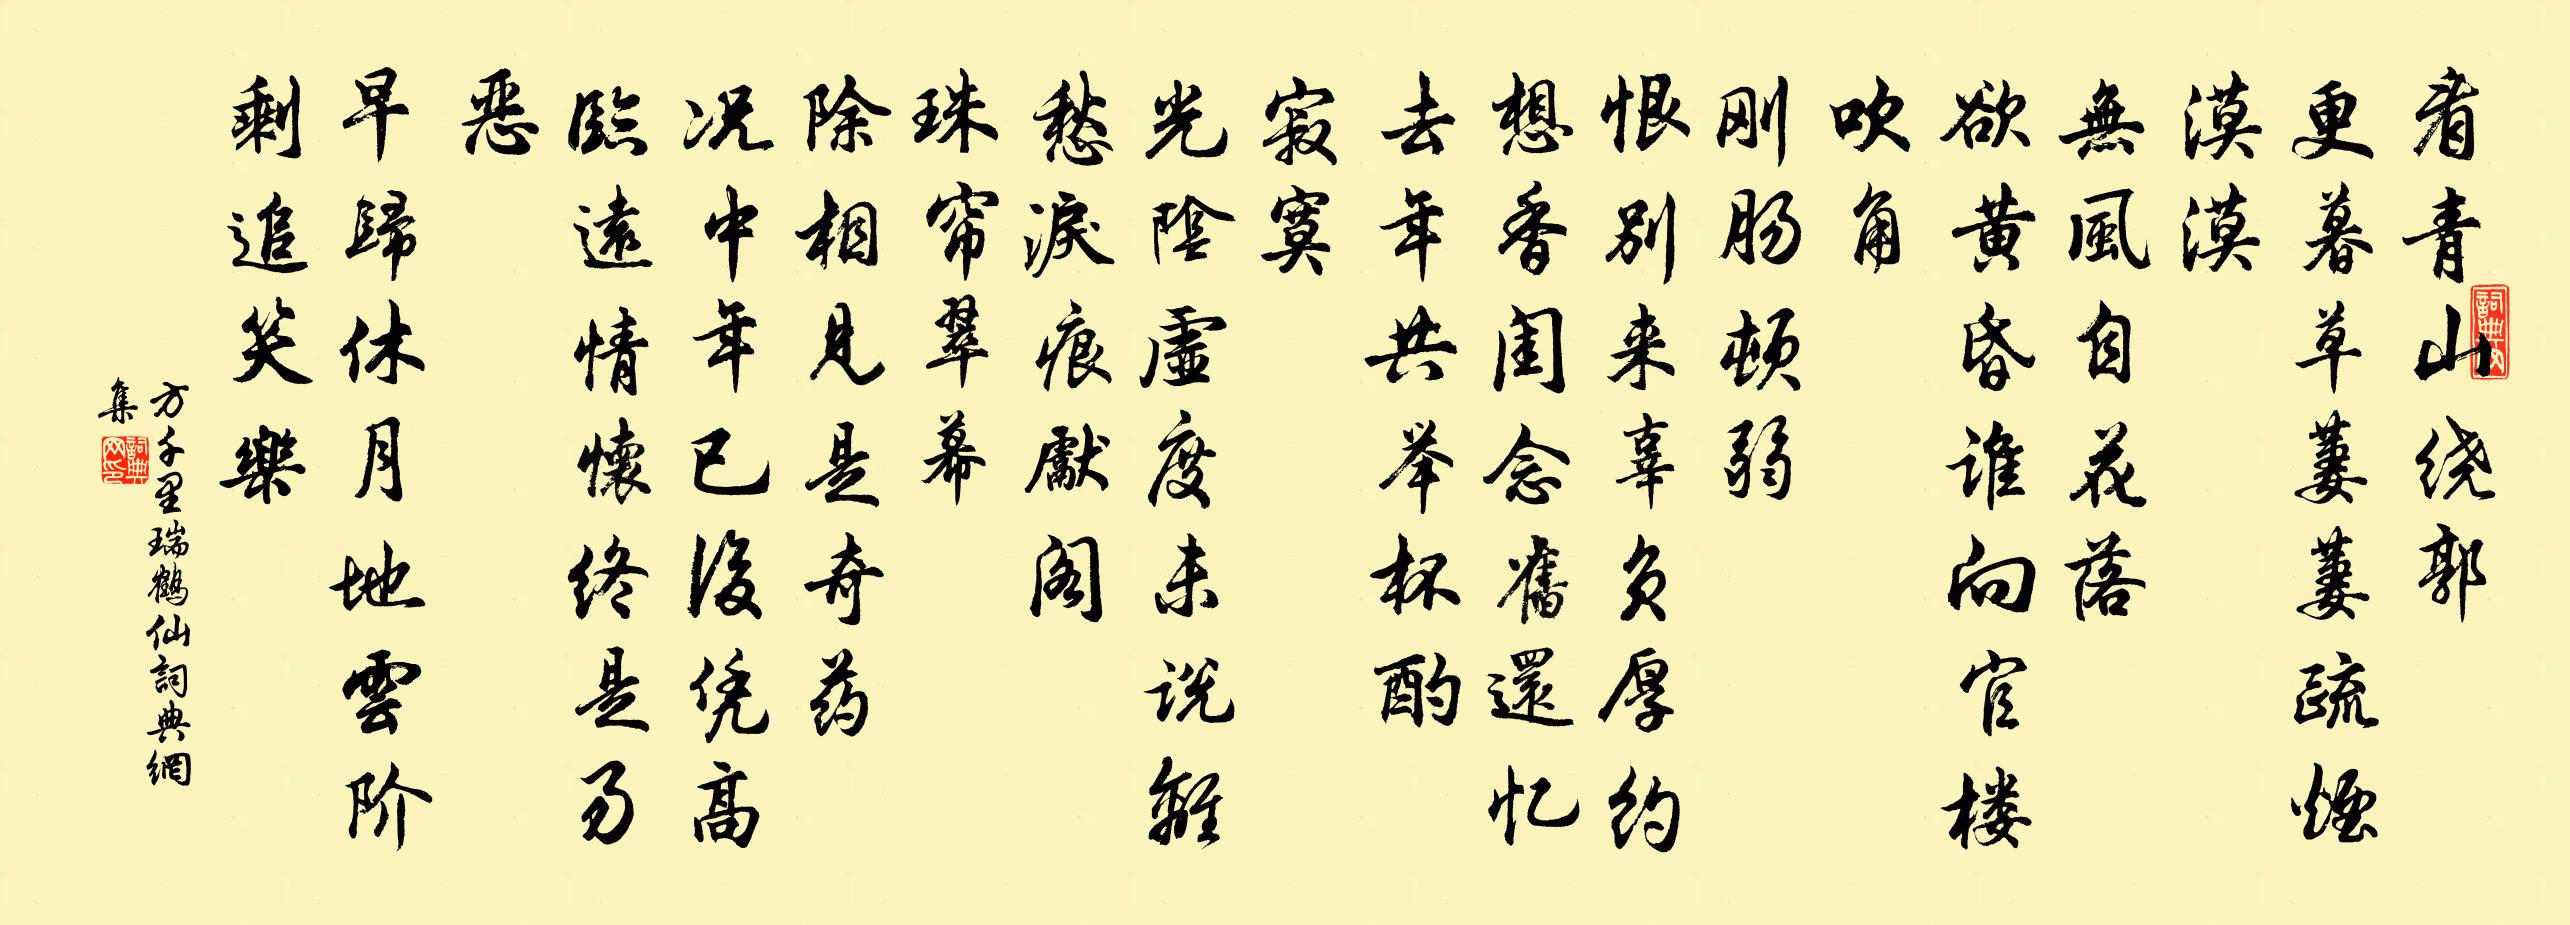 看青山绕郭
更暮草萋萋疏煙
漠漠
無風自花落
欲黄昏谁向官楼
吹角
刚肠顿弱
恨别来辜负厚约
想香闺念舊還忆
去年共举杯酌
寂寞
光陰虚度未说離
愁淚痕獻阁
珠帘翠幕
除相見是奇药
况中年已後凭高
臨遠情懷终是易
惡
早歸休月地雲阶
剩追笑樂
方千里瑞鶴仙詞典網
集
詞典网
詞典网印